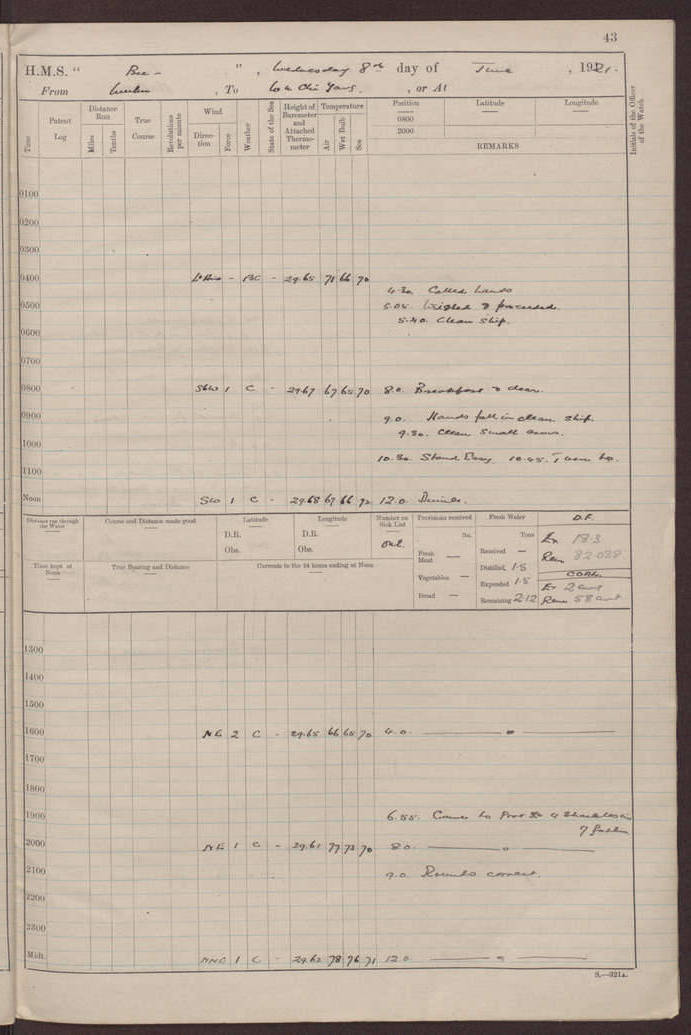 43
H.M.S. " Bee - ", Wednesday 8th day of June, 1921.
From , To , or At
Time
Patent Log
Distance Run
Miles
Tenths
True Course
Revolutions per minute
Wind
Direction
Force
Weather
State of the Sea
Height of Barometer and Attached Thermometer
Temperature
Air
Wet Bulb
Sea
Position Latitude Longitude
0800
2000
REMARKS
Initials of the Officer of the Watch
0100
0200
0300
0400 - BC - 29.65 71 66 70
4.30 Called hands
0500 5.05. Weighed & proceeded.
5.40. Clean ship.
0600
0700
0800 SbW 1 C - 29.67 67 65 70 8.0. Breakfast & clean.
0900 9.0. Hands fall in clean ship.
9.30. Clean small arms.
1000 10.30. Stand Easy. 10.45. Turn to.
1100
Noon SW 1 C - 29.68 67 66 72 12.0 Dinner.
Distance run through the Water
Course and Distance made good
Latitude
D.R.
Obs.
Longitude
D.R.
Obs.
Number on Sick List
One
Provisions received
lbs.
Fresh Meat —
Vegetables —
Bread —
Fresh Water
Tons
Received —
Distilled 1.5
Expended 1.5
Remaining 212
O.F.
Ex 18.3
Rem 82.028
COAL
Ex 2 cwt
Rem 58 cwt
Time kept at Noon
True Bearing and Distance
Currents in the 24 hours ending at Noon
1300
1400
1500
1600 NE 2 C - 29.65 66 65 70 4.0. — " —
1700
1800
1900 6.55. Came to Port 4 shackles in
7 fathm
2000 NE 1 C - 29.61 77 73 70 8.0. — " —
2100 9.0 Rounds correct.
2200
2300
Midt. NNE 1 C - 29.62 78 76 71 12.0 — " —
S.—321a.